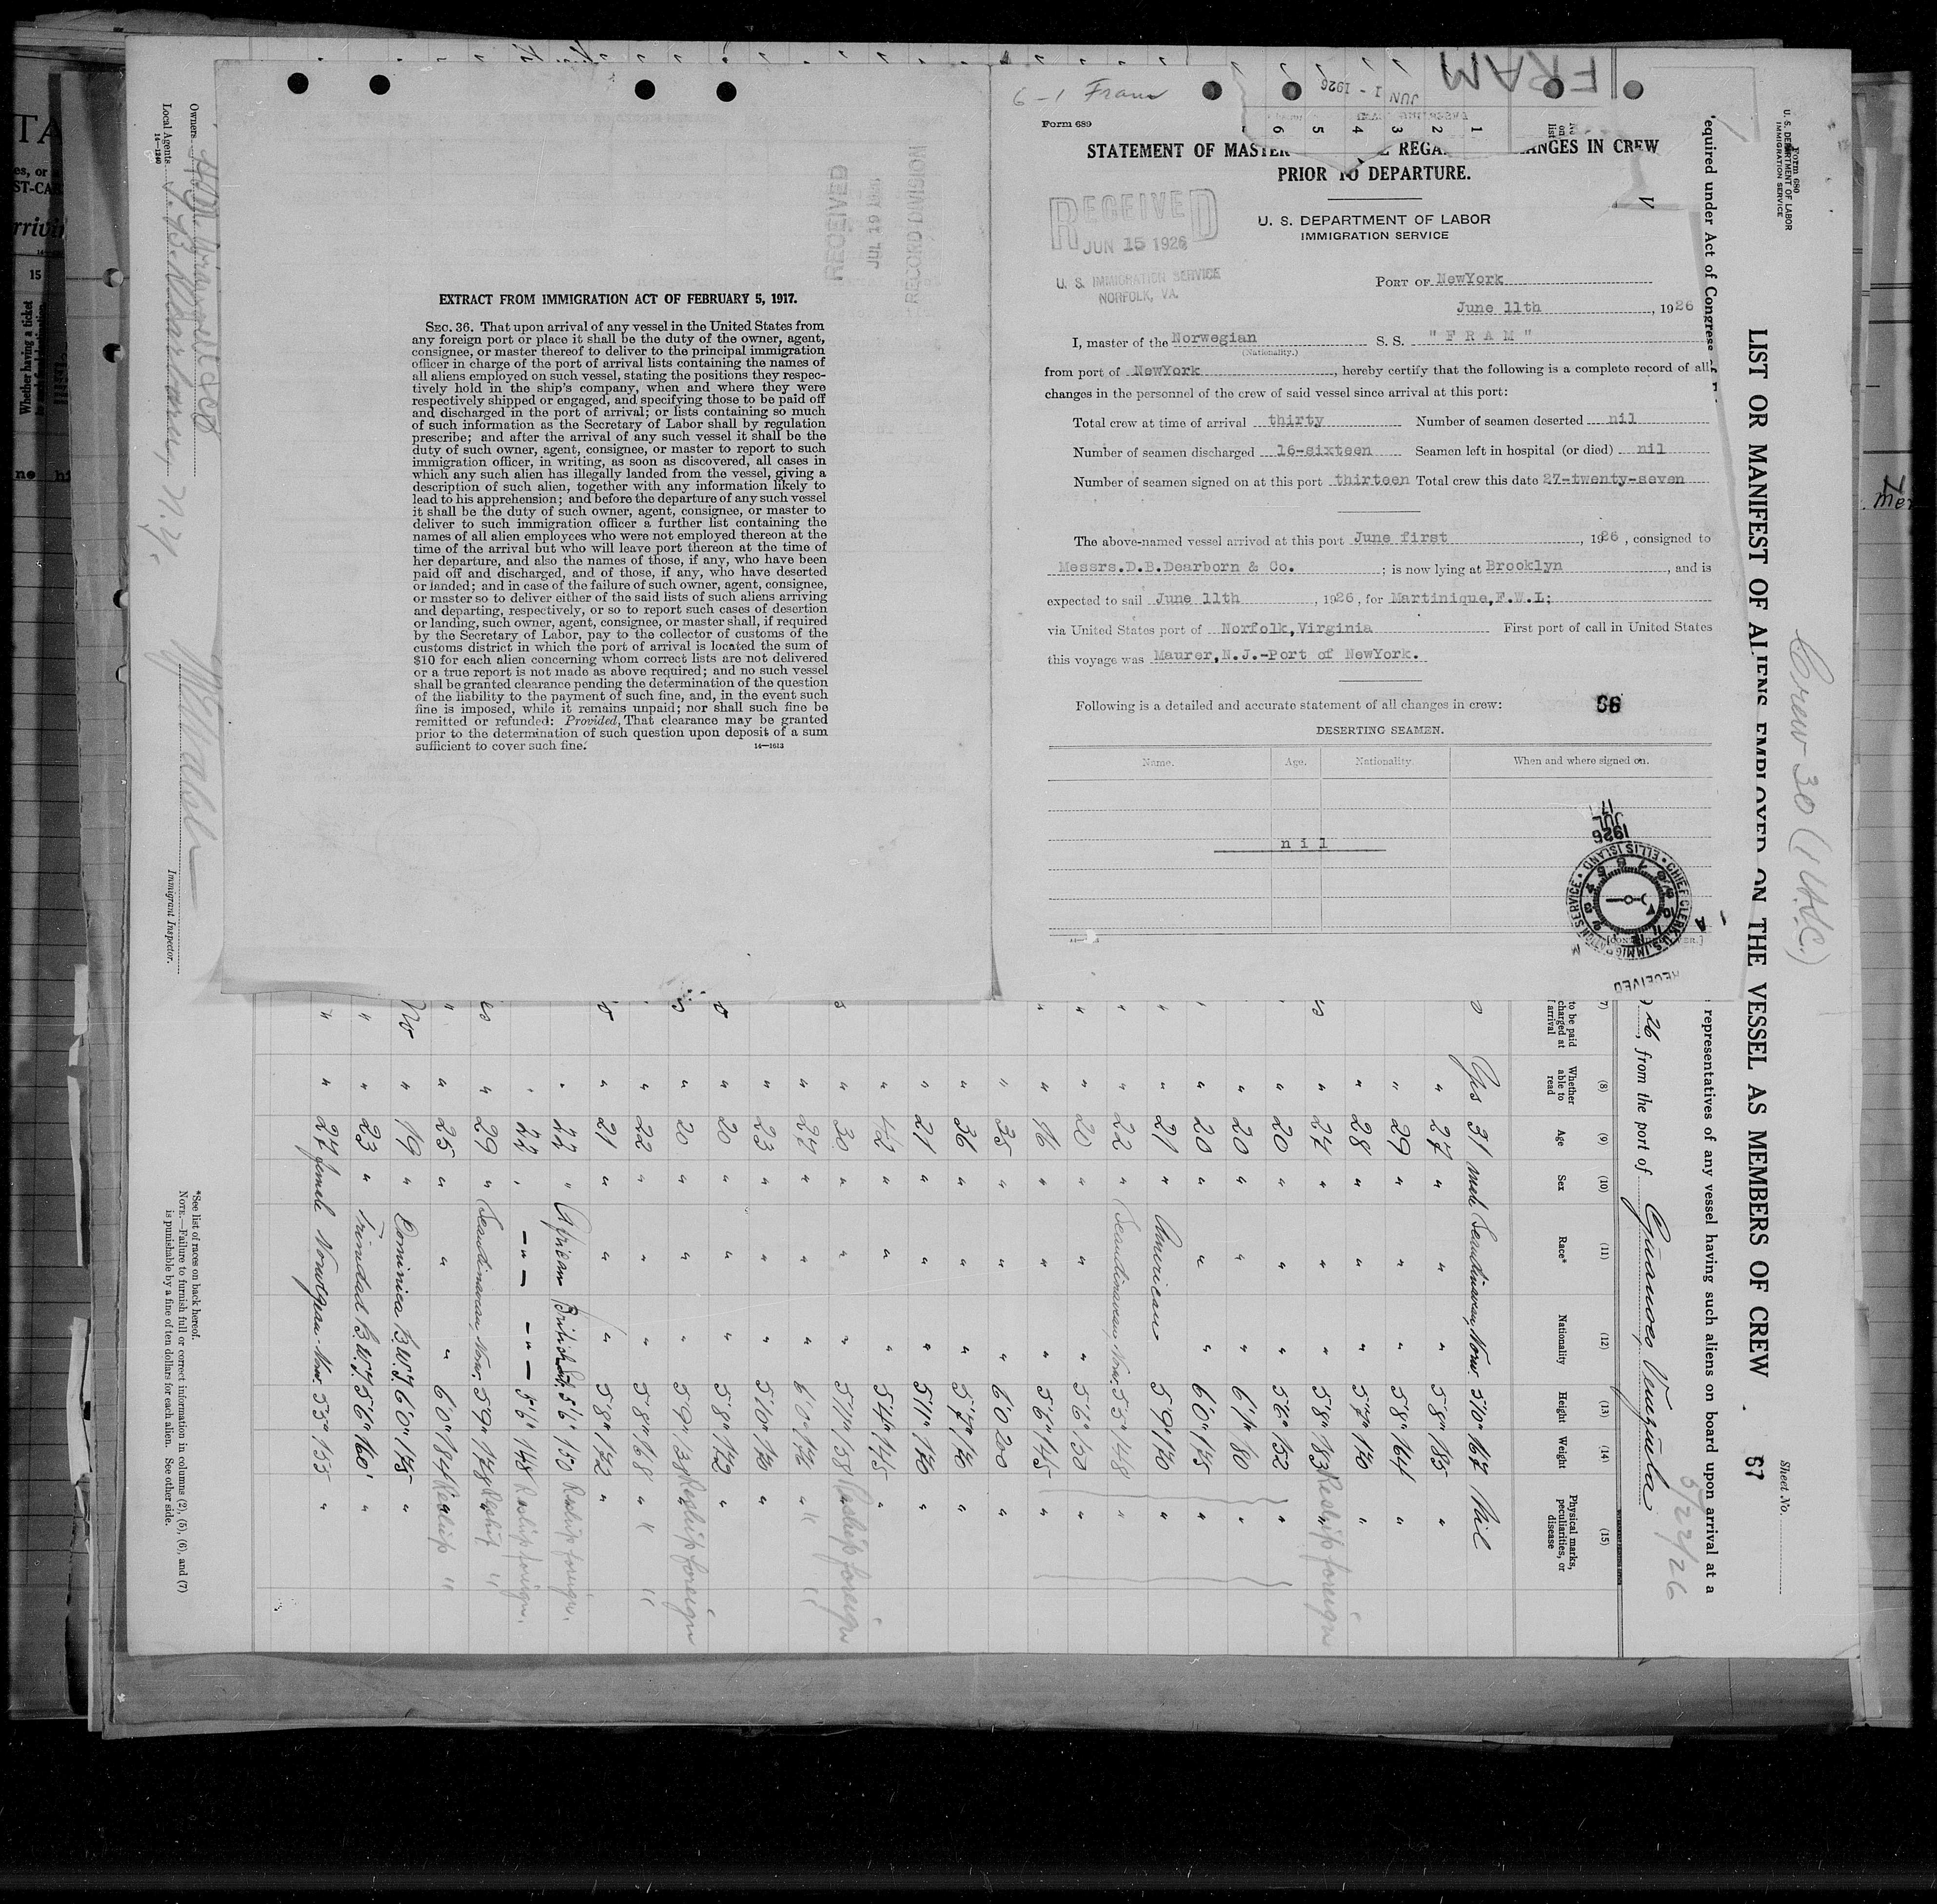 6-1 Fram
FRAM
JUN 1 - 1926
Form 689
STATEMENT OF MASTER REGA ANGES IN CREW
PRIOR TO DEPARTURE.
U. S. DEPARTMENT OF LABOR
IMMIGRATION SERVICE
RECEIVED
JUN 15 1926
U. S. IMMIGRATION SERVICE
NORFOLK, VA.
PORT OF NewYork
June 11th, 1926
I, master of the Norwegian S. S. "F R A M"
(Nationality.)
from port of NewYork, hereby certify that the following is a complete record of all
changes in the personnel of the crew of said vessel since arrival at this port:
Total crew at time of arrival thirty Number of seamen deserted nil
Number of seamen discharged 16-sixteen Seamen left in hospital (or died) nil
Number of seamen signed on at this port thirteen Total crew this date 27-twenty-seven
The above-named vessel arrived at this port June first, 1926, consigned to
Messrs.D.B.Dearborn & Co. ; is now lying at Brooklyn, and is
expected to sail June 11th, 1926, for Martinique,F.W.I;
via United States port of Norfolk,Virginia First port of call in United States
this voyage was Maurer,N.J.-Port of NewYork.
Following is a detailed and accurate statement of all changes in crew:
DESERTING SEAMEN.
Name. Age. Nationality. When and where signed on.
n i l
RECEIVED
JUL 17 1926
CHIEF CLERK U.S. IMMIGRATION SERVICE ELLIS ISLAND
RECEIVED
RECORD DIVISION
EXTRACT FROM IMMIGRATION ACT OF FEBRUARY 5, 1917.
SEC. 36. That upon arrival of any vessel in the United States from
any foreign port or place it shall be the duty of the owner, agent,
consignee, or master thereof to deliver to the principal immigration
officer in charge of the port of arrival lists containing the names of
all aliens employed on such vessel, stating the positions they respec-
tively hold in the ship's company, when and where they were
respectively shipped or engaged, and specifying those to be paid off
and discharged in the port of arrival; or lists containing so much
of such information as the Secretary of Labor shall by regulation
prescribe; and after the arrival of any such vessel it shall be the
duty of such owner, agent, consignee, or master to report to such
immigration officer, in writing, as soon as discovered, all cases in
which any such alien has illegally landed from the vessel, giving a
description of such alien, together with any information likely to
lead to his apprehension; and before the departure of any such vessel
it shall be the duty of such owner, agent, consignee, or master to
deliver to such immigration officer a further list containing the
names of all alien employees who were not employed thereon at the
time of the arrival but who will leave port thereon at the time of
her departure, and also the names of those, if any, who have been
paid off and discharged, and of those, if any, who have deserted
or landed; and in case of the failure of such owner, agent, consignee,
or master so to deliver either of the said lists of such aliens arriving
and departing, respectively, or so to report such cases of desertion
or landing, such owner, agent, consignee, or master shall, if required
by the Secretary of Labor, pay to the collector of customs of the
customs district in which the port of arrival is located the sum of
$10 for each alien concerning whom correct lists are not delivered
or a true report is not made as above required; and no such vessel
shall be granted clearance pending the determination of the question
of the liability to the payment of such fine, and, in the event such
fine is imposed, while it remains unpaid; nor shall such fine be
remitted or refunded: Provided, That clearance may be granted
prior to the determination of such question upon deposit of a sum
sufficient to cover such fine.
14-1613
Form 680
U. S. DEPARTMENT OF LABOR
IMMIGRATION SERVICE
Sheet No.
Crew 30
LIST OR MANIFEST OF ALIENS EMPLOYED ON THE VESSEL AS MEMBERS OF CREW
67
equired under Act of Congress representatives of any vessel having such aliens on board upon arrival at a
26, from the port of
5/22/26
(8) (9) (10) (11) (12) (13) (14) (15)
to be paid charged at arrival
Whether able to read
Age
Sex
Race*
Nationality
Height
Weight
Physical marks, peculiarities, or disease
1
2
3
4
5
6
Yes 31 male Scandinavian Norw. 5'10" 167 Nil
" 27 " " " 5'8" 185 "
" 29 " " " 5'8" 164 "
" 28 " " " 5'7" 170 "
" 24 " " " 5'8" 183 Reship foreign
" 20 " " " 5'6" 152 "
" 20 " " " 6'1" 180 "
" 20 " " " 6'0" 175 "
" 21 " American 5'9" 170 "
" 22 " Scandinavian, Norw. 5'5" 148 "
" 20 " " " 5'6" 150 "
" 16 " " " 5'6" 145 "
" 35 " " " 6'0 200 "
" 36 " " " 5'7" 170 "
" 21 " " " 5'11" 170 "
" 42 " " " 5'4" 145 "
" 30 " " " 5'11" 158 Reship foreign
" 27 " " " 6'0" 172 " "
" 23 " " " 5'10" 170 "
" 20 " " " 5'8" 172 "
" 20 " " " 5'9" 138 Reship foreign
" 22 " " " 5'8" 168 " "
" 21 " " " 5'8" 172 "
" 22 " African British 5'6" 150 Reship foreign.
" 22 " -"- -"- 5'6" 148 Reship foreign.
" 29 " Scandinavian, Norw. 5'9" 178 Reship "
" 25 " " " 6'0" 184 Reship "
No " 19 " Dominica B.W.I 6'0" 175 "
" " 23 " Trinidad B.W.I 5'6" 160 "
" " 27 female Norwegian Norw. 5'5" 155 "
*See list of races on back hereof.
NOTE.—Failure to furnish full or correct information in columns (2), (5), (6), and (7)
is punishable by a fine of ten dollars for each alien. See other side.
Owners
Local Agents
14-1240
Immigrant Inspector.